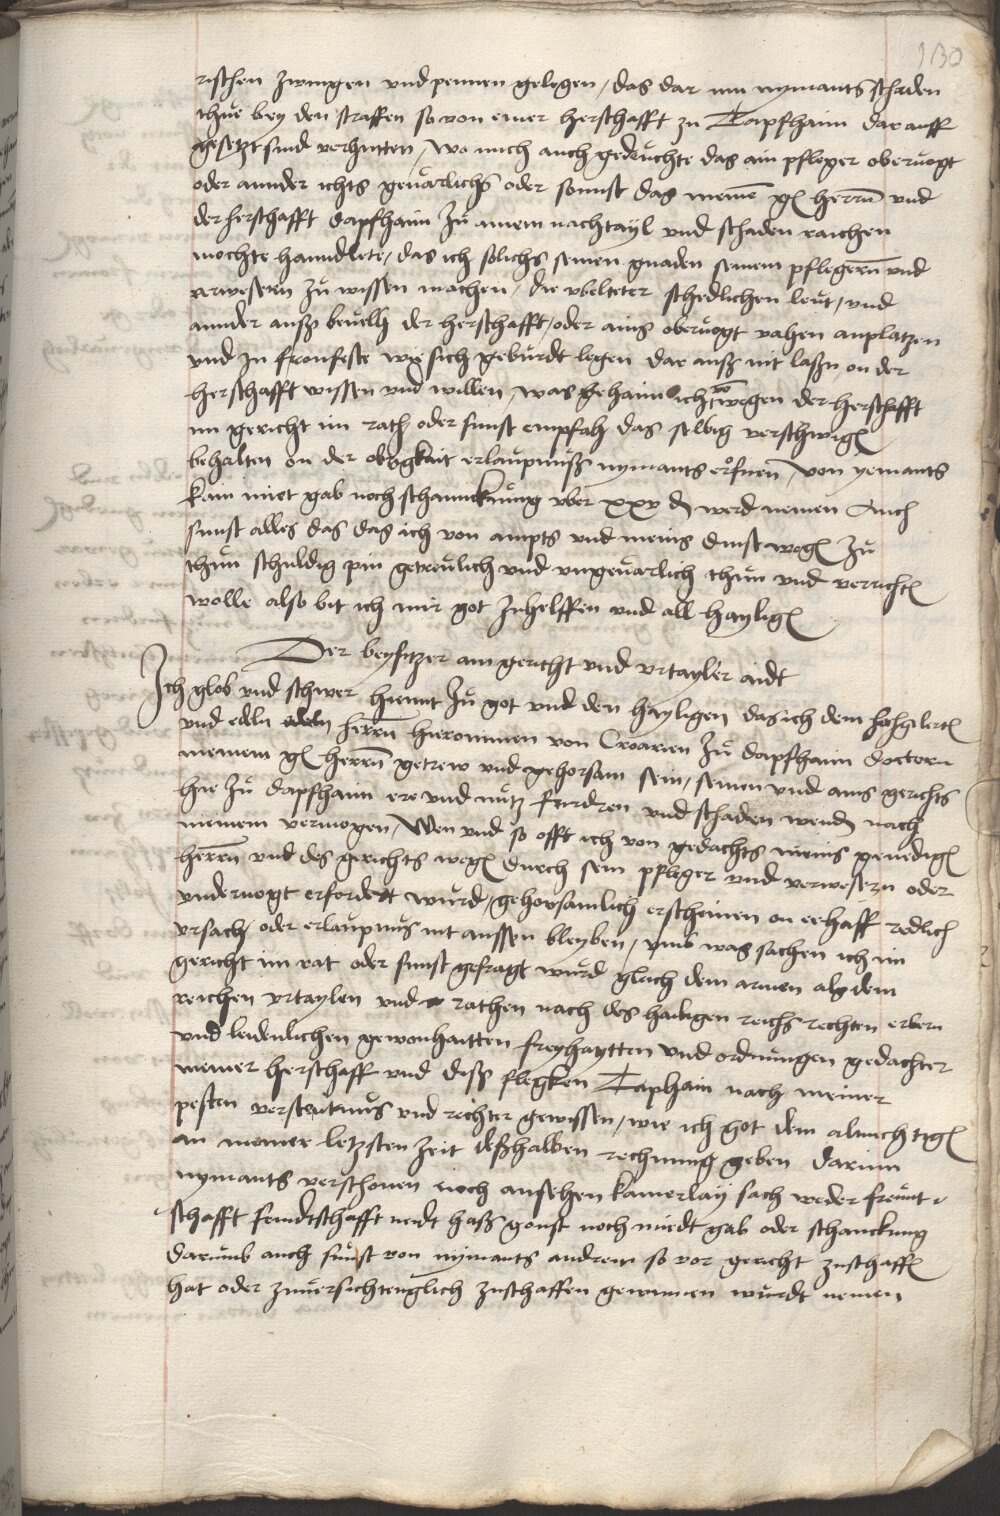 130
rischen zwingen vnd pennen gelegen / das dar inn nymants schaden
thue bey den straffen so von einer herschafft zu Tapfhaim dar auff
gesetzt sind verhutten / Wo mich auch gedeuchte das ain pfleger oberuogt
oder annder ichts geuarlichs oder sonnst das meinē gn herrn̄ vnd
der herschafft dapfhaim zu ainem nachtayl vnd schaden raichen
mochte hanndlete / das ich solichs seinen gnaden seinem pflegern̄ vnd
verwesern zu wissen machen / die vbelteter schedlichen leut / vnd
annder auss beuelh der herschafft / oder ains oberuogt vahen anplatzen
vnd in fronfeste wie sich geburdt legen dar auss nit lassn on der
herschafft wissen vnd willen / was gehaim ich von wegen der herschafft
im gericht im rath oder sunst empfah das selbig verschwign
behalten on der obrigkait erlaupnuss nymants erofnen / von yemants
kain miet gab noch schannckung vber xxx d werd nemen Auch
sunst alles das das ich von ampts vnd meins dinst wegn zu
thun schuldig pin getreulich vnd vngeuarlich thun vnd verrichtn
wolle also bit ich mir got zuhelffen vnd all haylign
Der beysitzer am gericht vnd vrtayler aidt
Ich glob vnd schwer hiemit zu got vnd den hayligen das ich dem hochglertn
vnd edeln herrn̄ hieronimen von Croarien zu dapfhaim doctorn
meinem gn herrn̄ getrew vnd gehorsam sein / seinen vnd ains gerichts
hie zu dapfhaim ere vnd nutz furdren vnd schaden wendn nach
meinem vermogen / Wen vnd so offt ich von gedachts meins genedign
herrn̄ vnd des gerichts wegn durch sein pfleger vnd verwesern oder
vnderuogt erfordert wurd / gehorsamlich erscheinen on eehaff redlich
vrsach oder erlaupnus nit aussen bleyben / vmb was sachen ich im
gericht im rat oder sunst gefragt wurd gleich dem armen als dem
reichen vrtaylen vnd rathen nach des hailigen reichs rechten erbern
vnd leidenlichen gewonhaitten freyhaytten vnd ordnungen gedachter
meiner herschaff vnd diss flegken Taphaim nach meiner
pesten verstentnus vnd rechter gewissen / wie ich got dem almechtign
an meiner letzsten zeit desshalben rechnung geben darinn
nymants verschonen noch ansehen kainerlay sach weder freunt
schafft feindtschafft neidt hass gonst noch miedt gab oder schanckung
darumb auch sunst von nymants andrem so vor gericht zuschaffn
hat oder zuuersichtenglich zuschaffen gewinnen wurdt nemen